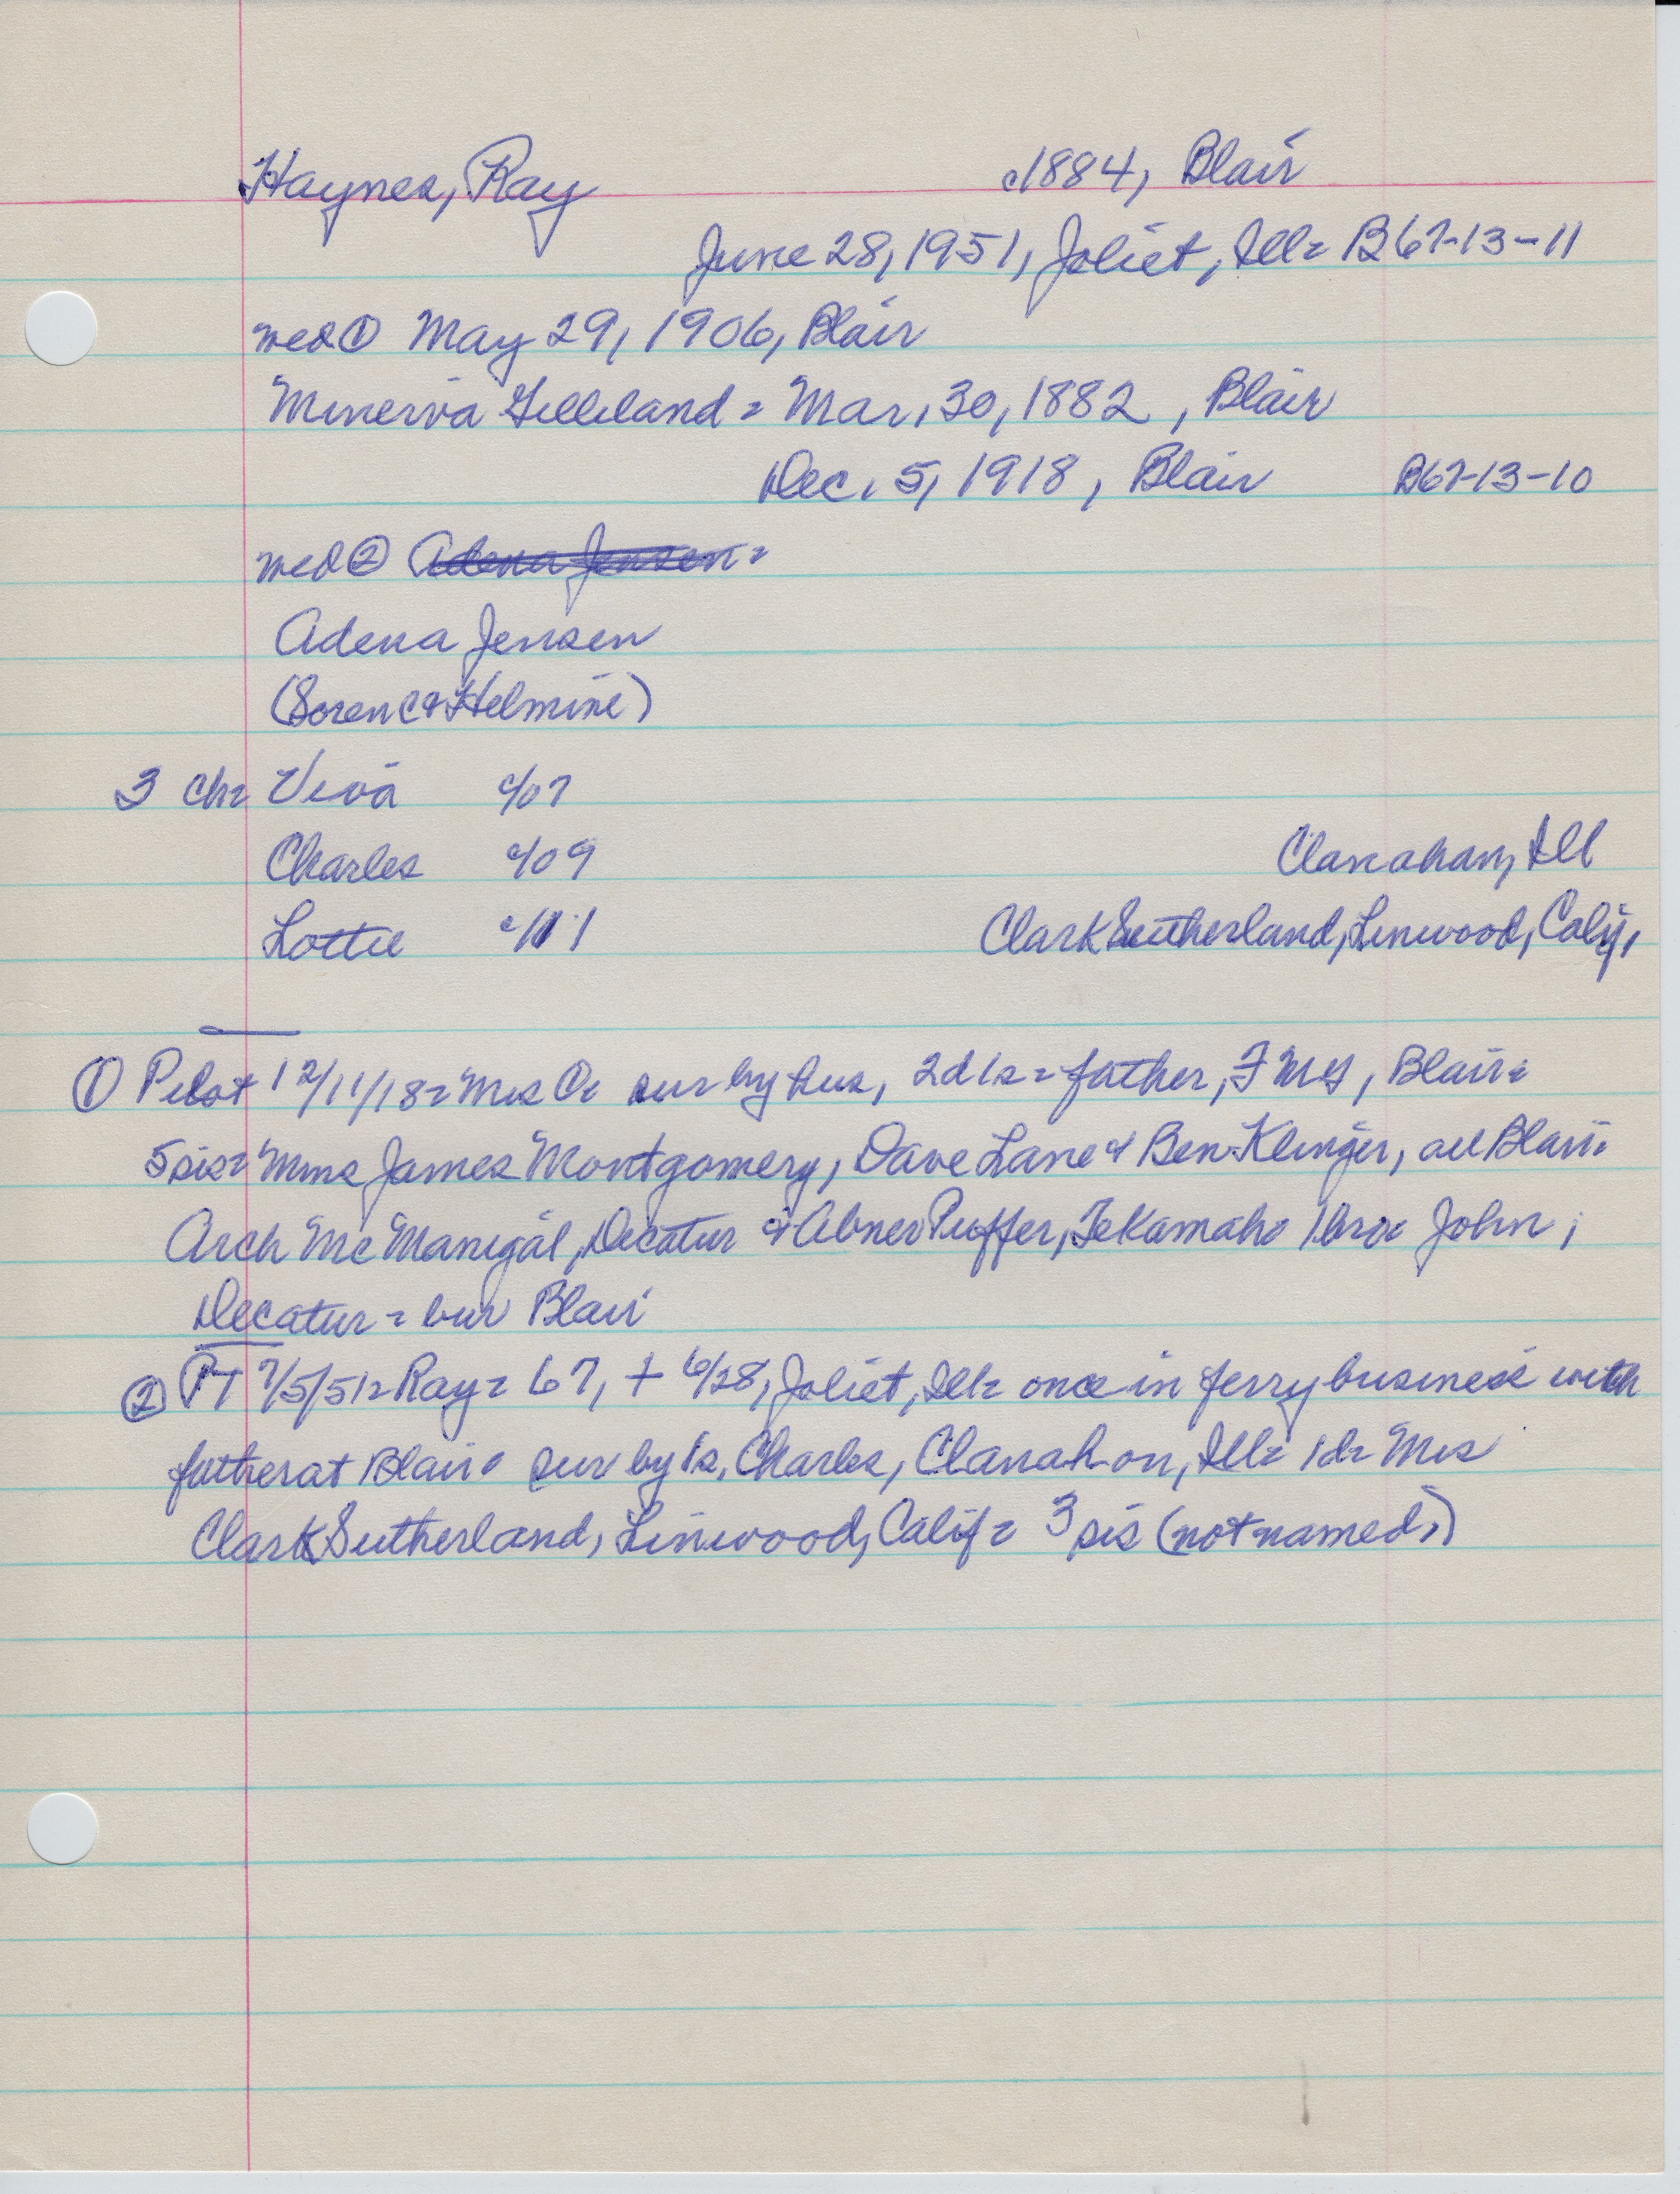 Haynes, Ray c1884, Blair
June 28, 1951, Joliet, Ill= B67-13-11
med ① May 29, 1906, Blair
Minerva Gilleland = Mar. 30, 1882, Blair
Dec. 5, 1918, Blair B67-13-10
med ② Adena Jensen=
Adena Jensen
(Soren C & Helmine)
3 ch= Viva c/07
Charles c/09 Clanahan, Ill
Lottie c/11 Clark Sutherland, Linwood, Calif,
① Pilot 12/11/18= Mrs sur by hus, 2d 1s = father, Blair=
5 sis= Mms James Montgomery, Dave Lane & Ben Klinger, all Blair=
Arch McManigal, Decatur & Abner Puffer, Tekamah= 1 bro= John,
Decatur = bur Blair
② PT 7/5/51= Ray= 67, + 6/28, Joliet, Ill= once in ferry business with
father at Blair= sur by 1s, Charles, Clanahon, Ill= 1d= Mrs
Clark Sutherland, Linwood, Calif= 3 sis (not named.)